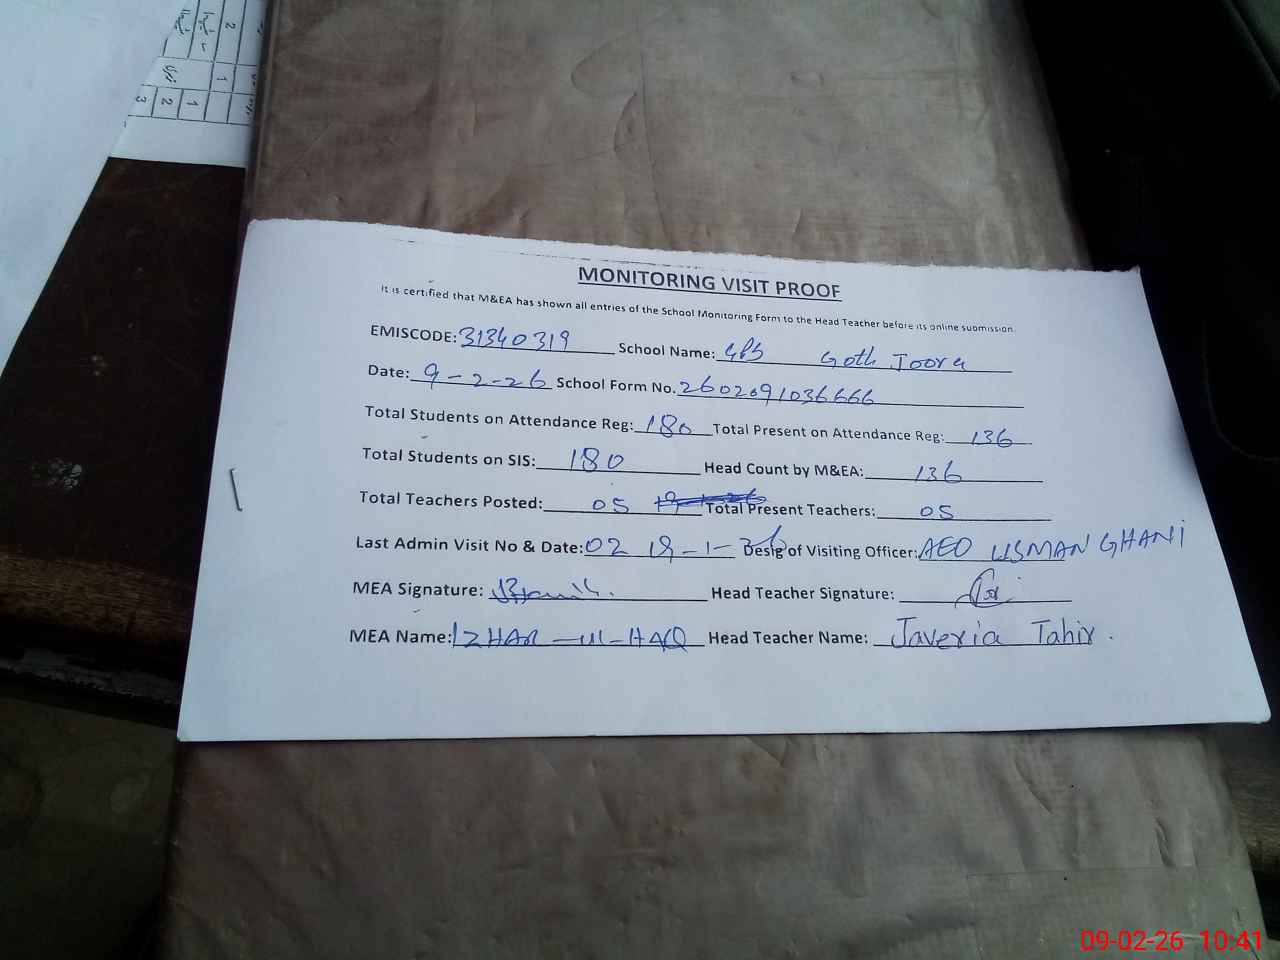 MONITORING VISIT PROOF
It is certified that M&EA has shown all entries of the School Monitoring Form to the Head Teacher before its online submission.
EMISCODE: 31340319 School Name: GPS Goth Joora
Date: 9-2-26 School Form No. 2602091036666
Total Students on Attendance Reg: 180 Total Present on Attendance Reg: 136
Total Students on SIS: 180 Head Count by M&EA: 136
Total Teachers Posted: 05 Total Present Teachers: 05
Last Admin Visit No & Date: 02 19-1-26 Desig of Visiting Officer: AEO USMAN GHANI
MEA Signature: Head Teacher Signature:
MEA Name: IZHAR-ul-HAQ Head Teacher Name: Javeria Tahir.
09-02-26 10:41